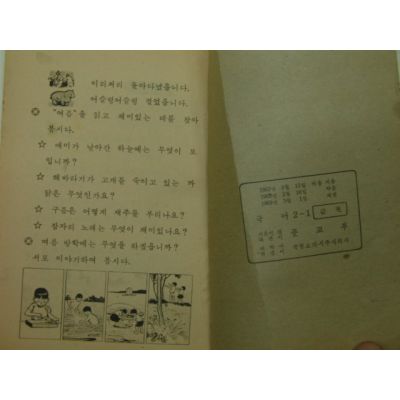 이리저리 돌아다녔습니다.
어슬렁어슬렁 걸었습니다.
"여름"을 읽고 재미있는 데를 찾아
봅시다.
☆ 매미가 날아간 하늘에는 무엇이 보
입니까?
☆ 해바라기가 고개를 숙이고 있는 까
닭은 무엇인가요?
☆ 구름은 어떻게 재주를 부리나요?
☆ 잠자리 노래는 무엇이 재미있나요?
여름 방학에는 무엇을 하겠읍니까?
서로 이야기하여 봅시다.
국 어 2-1
문 교 부
국정교과서주식회사